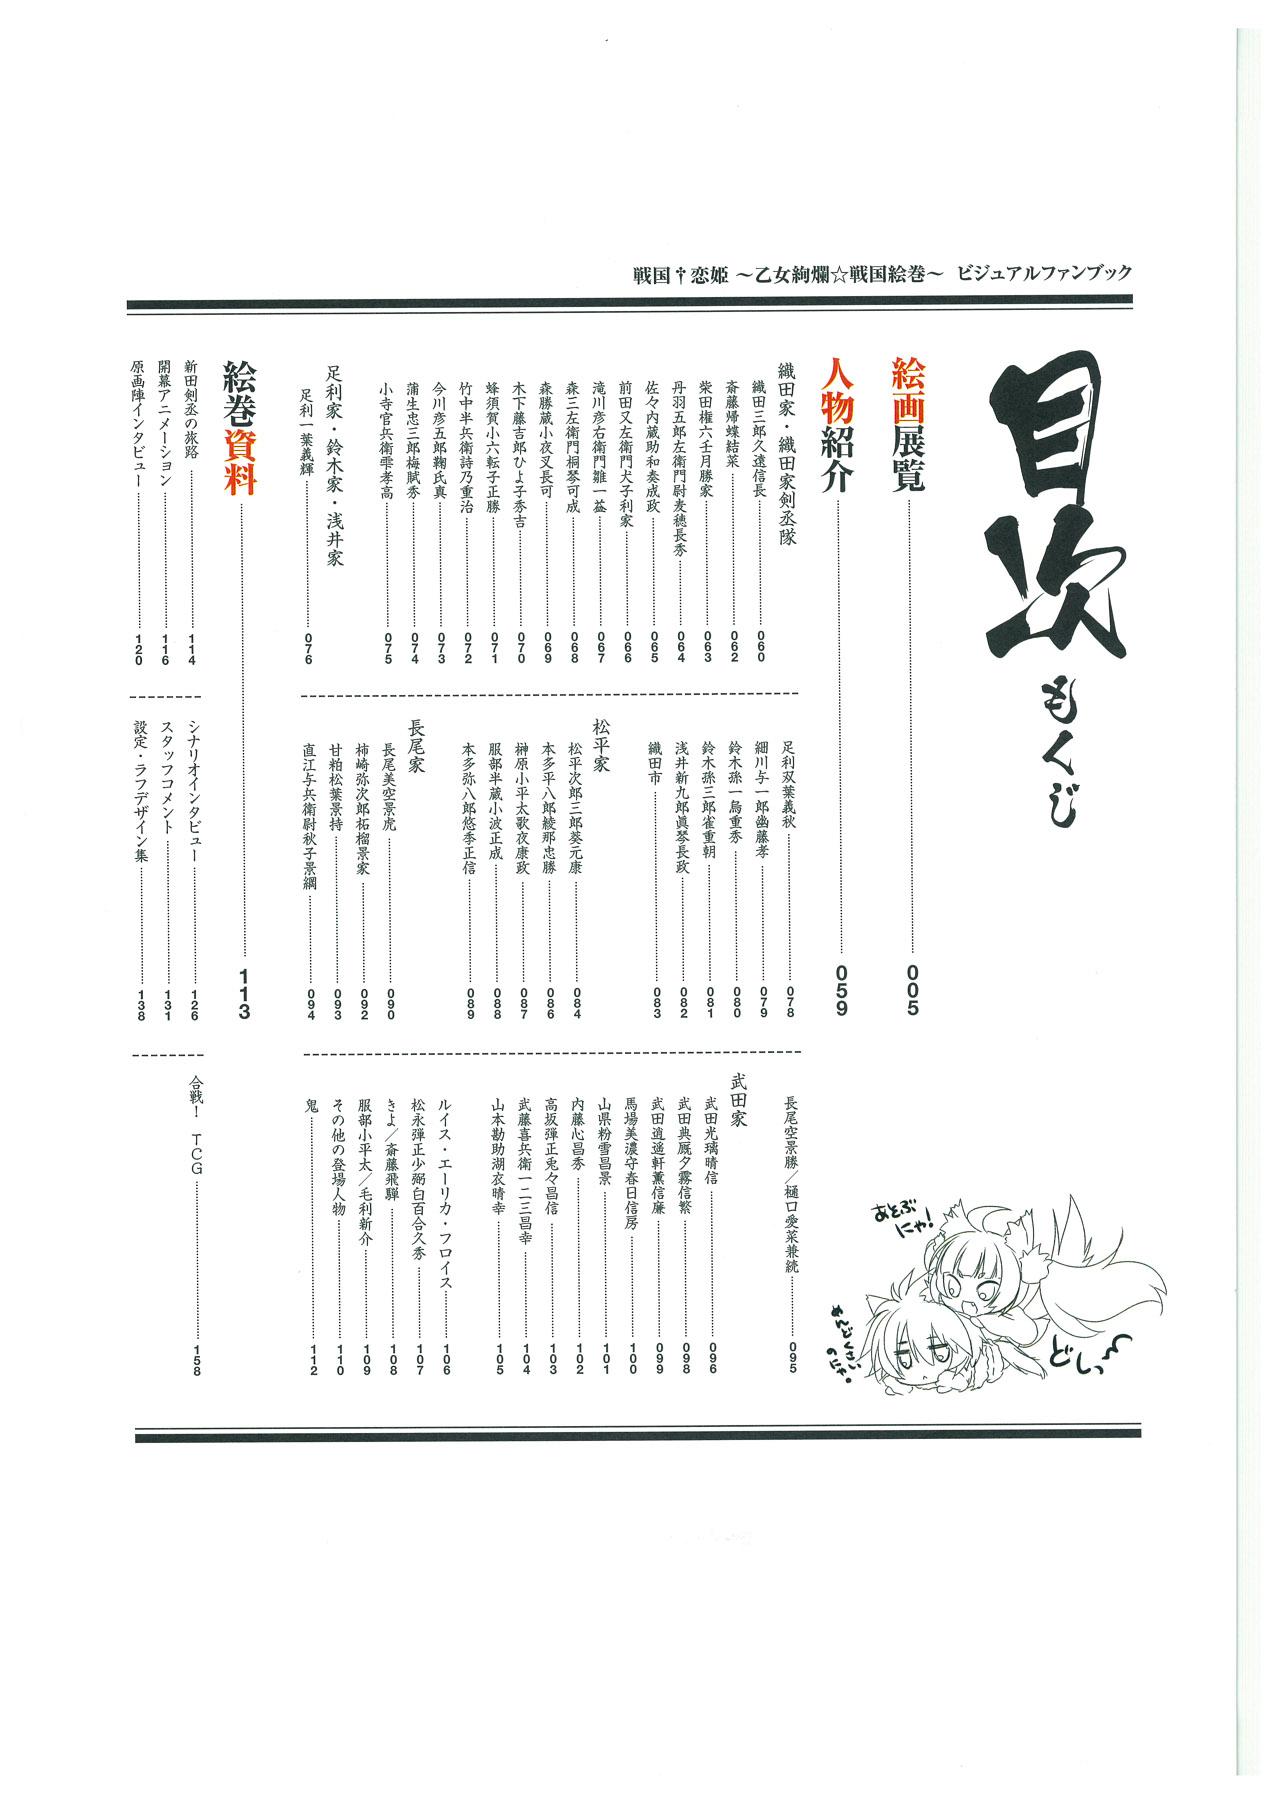 戦国†恋姫 ～乙女絢爛☆戦国絵巻～ ビジュアルファンブック
目次
もくじ
絵画展覧 005
人物紹介 059
織田家・織田家剣丞隊
織田三郎久遠信長 060
斎藤帰蝶結菜 062
柴田権六壬月勝家 063
丹羽五郎左衛門尉麦穂長秀 064
佐々内蔵助和奏成政 065
前田又左衛門犬子利家 066
滝川彦右衛門雛一益 067
森三左衛門桐琴可成 068
森勝蔵小夜叉長可 069
木下藤吉郎ひよ子秀吉 070
蜂須賀小六転子正勝 071
竹中半兵衛詩乃重治 072
今川彦五郎鞠氏真 073
蒲生忠三郎梅賦秀 074
小寺官兵衛雫孝高 075
足利家・鈴木家・浅井家
足利一葉義輝 076
足利双葉義秋 078
細川与一郎幽藤孝 079
鈴木孫一烏重秀 080
鈴木孫三郎雀重朝 081
浅井新九郎眞琴長政 082
織田市 083
松平家
松平次郎三郎葵元康 084
本多平八郎綾那忠勝 086
榊原小平太歌夜康政 087
服部半蔵小波正成 088
本多弥八郎悠季正信 089
長尾家
長尾美空景虎 090
柿崎弥次郎柘榴景家 092
甘粕松葉景持 093
直江与兵衛尉秋子景綱 094
長尾空景勝／樋口愛菜兼続 095
武田家
武田光璃晴信 096
武田典厩夕霧信繁 098
武田逍遥軒薫信廉 099
馬場美濃守春日信房 100
山県粉雪昌景 101
内藤心昌秀 102
高坂弾正兎々昌信 103
武藤喜兵衛一二三昌幸 104
山本勘助湖衣晴幸 105
ルイス・エーリカ・フロイス 106
松永弾正少弼白百合久秀 107
きよ／斎藤飛騨 108
服部小平太／毛利新介 109
その他の登場人物 110
鬼 112
絵巻資料 113
新田剣丞の旅路 114
開幕アニメーション 116
原画陣インタビュー 120
シナリオインタビュー 126
スタッフコメント 131
設定・ラフデザイン集 138
合戦！ TCG 158
あそぶ
にゃ！
めんどくさい
のにゃ。
どしっ